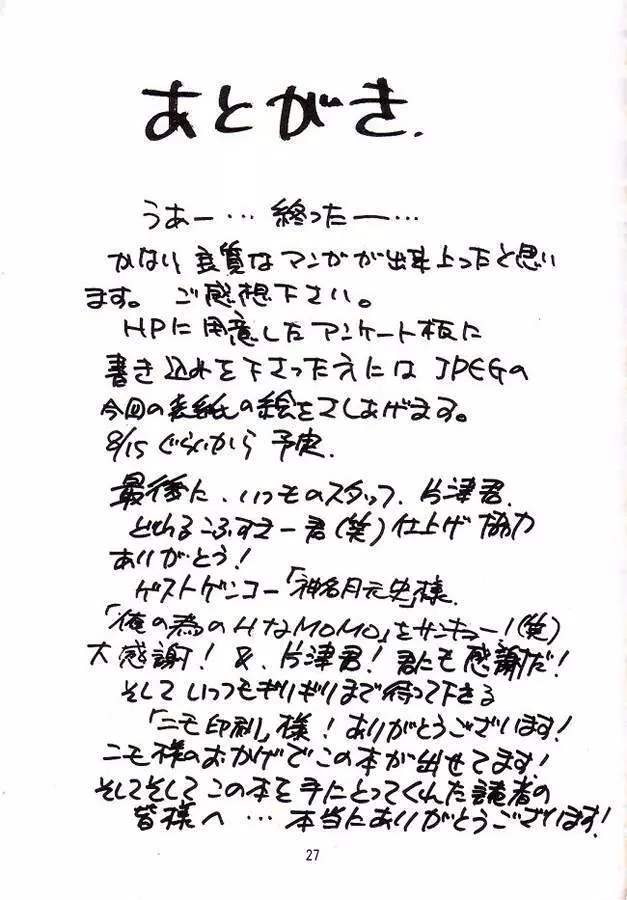 あとがき.
うあー… 終ったー…
かない 良質なマンがが出来上ったと思い
ます。ご感想下さい。
HPに用意したアンケート板に
書き込めを下さったえには JPEGの
今回の表紙の絵をさしあげます。
8/15ぐらいから 予定.
最後に、いつものスタッフ、片津君.
とれるこふすえー君(笑)仕上げ協力
ありがとう!
ゲストゲンコー「神名月元史」様.
「俺の為のHなMOMO」をサンキュー!(笑)
大感謝! &、片津君! 君にも感謝だ!
そして いつもギリギリまで待って下さる
「ニモ印刷」様! ありがとうございます!
ニモ様のおかげでこの本が出せてます!
そしてそして この本を手にとってくれた読者の
皆様へ … 本当にありがとうございます!
27